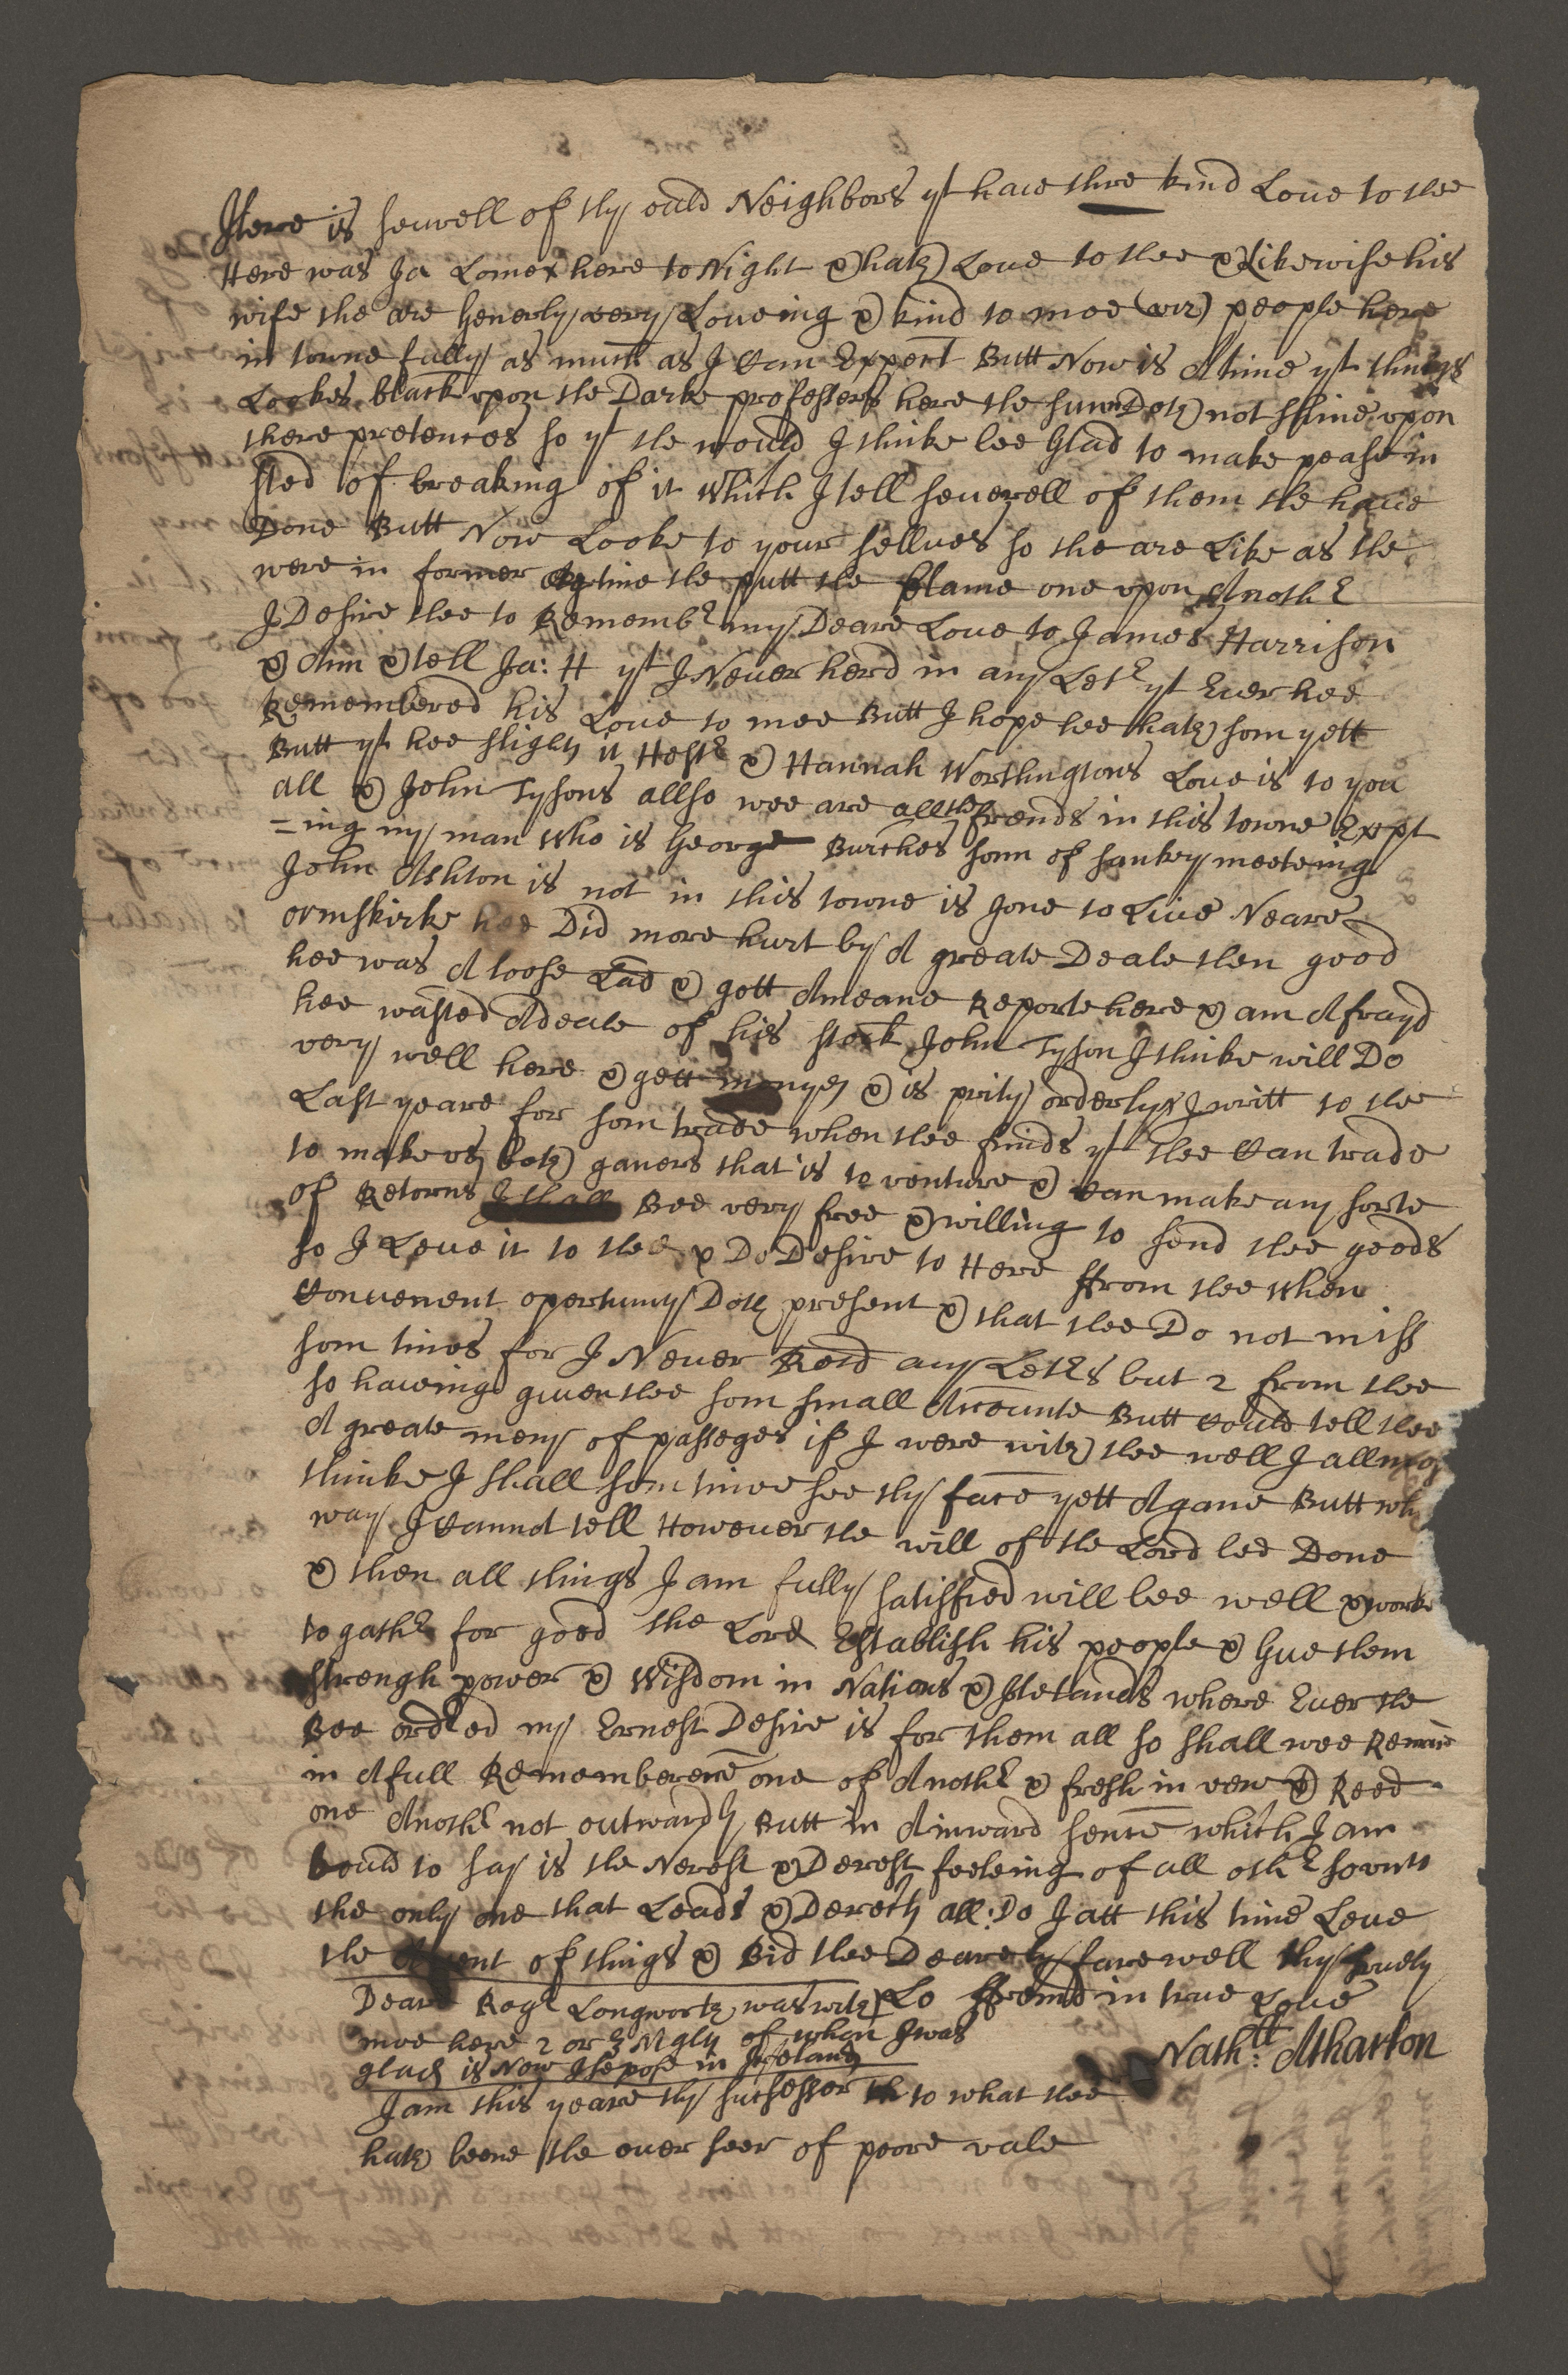 Here is sewell of thy ould Neighbors yt have thire kind Love to thee
Here was Ja Lomax here to Night & hath Love to thee & Likewise his
wife the are Generly very Loveing & kind to mee (viz) people here
in towne fully as much as I Can Expect Butt Now is A time yt things
Lookes black upon the Darke professers here the sunn Doth not shine upon
there pretences so yt the would I thinke bee Glad to make pease in
sted of breaking of it Which I tell severell of them the have
Done Butt Now Looke to your sellves so the are Like as the
were in former time the putt the blame one upon Anothr
I Desire thee to Remembr my Deare Love to James Harrison
& Ann & tell Ja: H yt I Never herd in any Letr yt Ever hee
Remembered his Love to mee Butt I hope hee hath som yett
Butt yt hee slights it Hestr & Hannah Worthingtons Love is to you
all & John Tysons allso wee are all the frends in this towne Exept
=ing my man Who is George Burches sonn of sankey meeteing
John Ashton is not in this towne is gone to Live Neare
ormskirke hee Did more hurt by A greate Deale then good
hee was A loose Lad & gott A meane Reporte here & am Afrayd
hee wasted A deale of his stock John Tyson I thinke will Do
very well here & gett monyes & is prity orderly I writt to thee
Last yeare for som trade when thee finds yt thee Can trade
to make us both ganers that is to venture & Can make any sorte
of Retorns I shall Bee very free & willing to send thee goods
so I Leve it to thee & Do Desire to Here ffrom thee when
Convenent opertunity Doth present & that thee Do not miss
som times for I Never Recd any Letrs but 2 from thee
so haveing given thee som small Accounte Butt Could tell thee
A greate meny of passeges if I were with thee well I allmos
thinke I shall som time see thy face yett Agane Butt wh
way I Cannot tell However the will of the Lord bee Done
& then all things I am fully satisfied will bee well & worke
togathr for good the Lord Establish his people & Give them
strengh power & Wisdom in Nations & Ilelands where Ever the
Bee ordred my Ernest Desire is for them all so shall wee Remaine
in A full Rememberence one of Anothr & fresh in vew & Reed
one Anothr not outwardly Butt in A inward sence which I am
bould to say is the Nerest & Derest feeleing of all othr
the only one that Leads & all: Do I att this time Leve
the of things & Bid thee Dearely farewell thy
Deare Rogr Longworth was with Lo ffreind in true Love
mee here 2 or 3 Nights of whom I was
glad is Now I sepose in Ireland
Nathll: Atharton
I am this yeare thy sucsesser to what thee
hath beene the over seer of poore vale